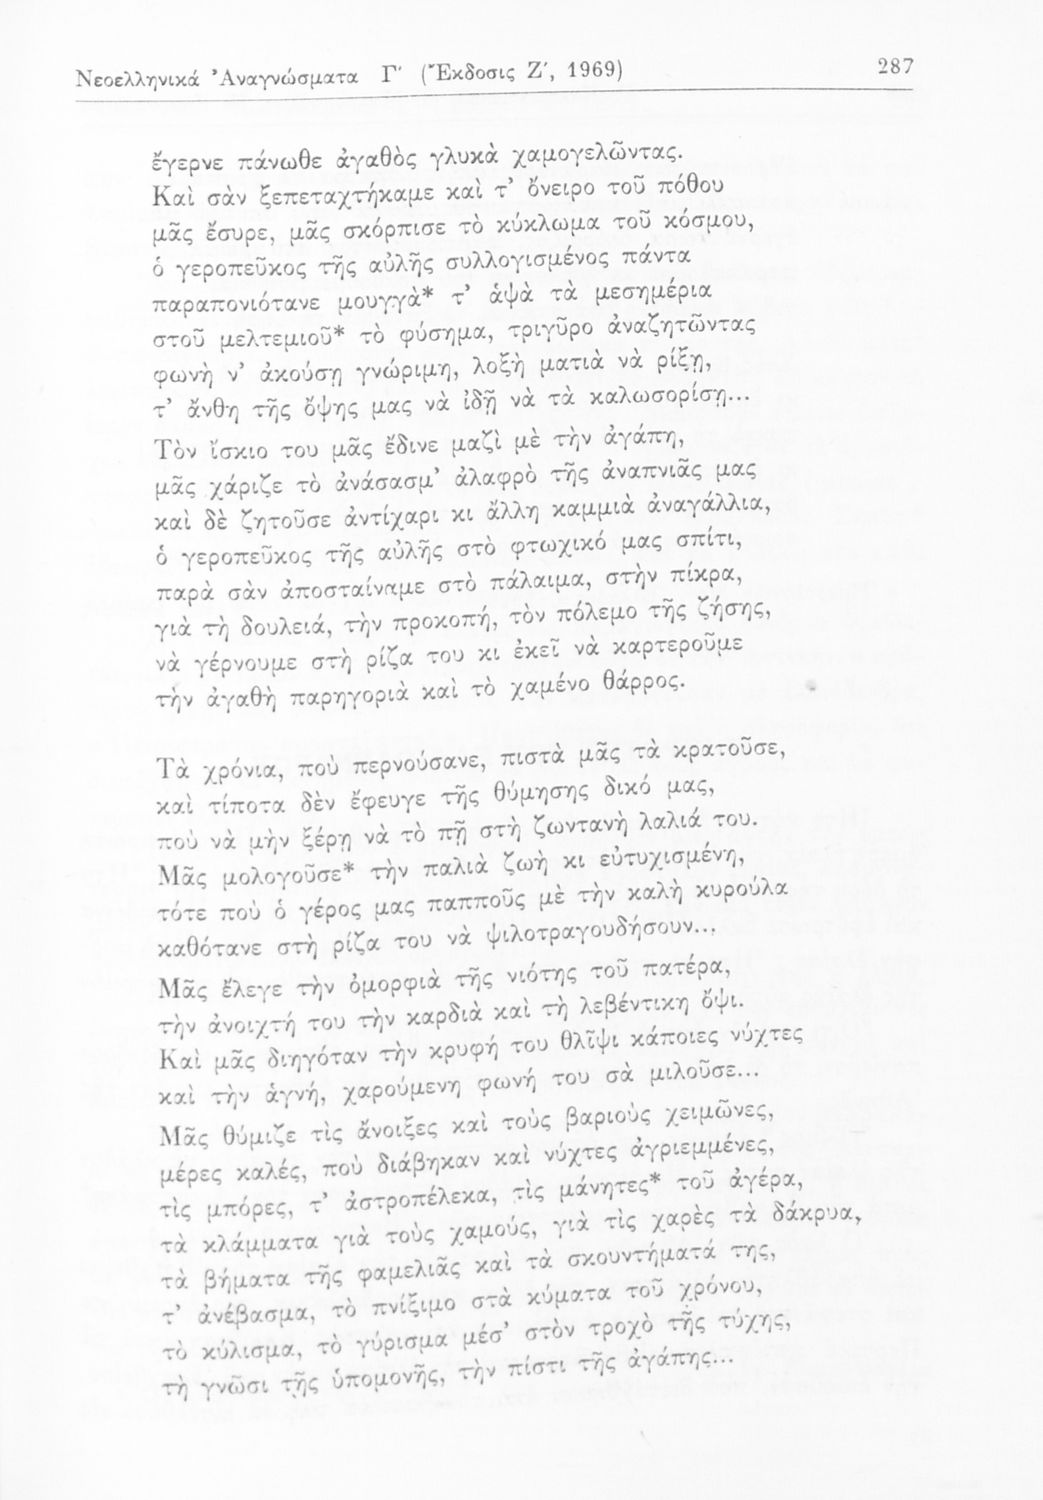 Νεοελληνικά Ἀναγνώσματα Γ' (Ἔκδοσις Ζ', 1969) 287
ἔγερνε πάνωθε ἀγαθὸς γλυκὰ χαμογελῶντας.
Καὶ σὰν ξεπεταχτήκαμε καὶ τ' ὄνειρο τοῦ πόθου
μᾶς ἔσυρε, μᾶς σκόρπισε τὸ κύκλωμα τοῦ κόσμου,
ὁ γεροπεῦκος τῆς αὐλῆς συλλογισμένος πάντα
παραπονιότανε μουγγὰ* τ' ἁψὰ τὰ μεσημέρια
στοῦ μελτεμιοῦ* τὸ φύσημα, τριγῦρο ἀναζητῶντας
φωνὴ ν' ἀκούσῃ γνώριμη, λοξὴ ματιὰ νὰ ρίξῃ,
τ' ἄνθη τῆς ὄψης μας νὰ ἰδῇ νὰ τὰ καλωσορίσῃ...
Τὸν ἴσκιο του μᾶς ἔδινε μαζὶ μὲ τὴν ἀγάπη,
μᾶς χάριζε τὸ ἀνάσασμ' ἀλαφρὸ τῆς ἀναπνιᾶς μας
καὶ δὲ ζητοῦσε ἀντίχαρι κι ἄλλη καμμιὰ ἀναγάλλια,
ὁ γεροπεῦκος τῆς αὐλῆς στὸ φτωχικό μας σπίτι,
παρὰ σὰν ἀποσταίναμε στὸ πάλαιμα, στὴν πίκρα,
γιὰ τὴ δουλειά, τὴν προκοπή, τὸν πόλεμο τῆς ζήσης,
νὰ γέρνουμε στὴ ρίζα του κι ἐκεῖ νὰ καρτεροῦμε
τὴν ἀγαθὴ παρηγοριὰ καὶ τὸ χαμένο θάρρος.
Τὰ χρόνια, ποὺ περνούσανε, πιστὰ μᾶς τὰ κρατοῦσε,
καὶ τίποτα δὲν ἔφευγε τῆς θύμησης δικό μας,
ποὺ νὰ μὴν ξέρῃ νὰ τὸ πῇ στὴ ζωντανὴ λαλιά του.
Μᾶς μολογοῦσε* τὴν παλιὰ ζωὴ κι εὐτυχισμένη,
τότε ποὺ ὁ γέρος μας παπποῦς μὲ τὴν καλὴ κυρούλα
καθότανε στὴ ρίζα του νὰ ψιλοτραγουδήσουν...
Μᾶς ἔλεγε τὴν ὀμορφιὰ τῆς νιότης τοῦ πατέρα,
τὴν ἀνοιχτή του τὴν καρδιὰ καὶ τὴ λεβέντικη ὄψι.
Καὶ μᾶς διηγόταν τὴν κρυφή του θλῖψι κάποιες νύχτες
καὶ τὴν ἁγνή, χαρούμενη φωνή του σὰ μιλοῦσε...
Μᾶς θύμιζε τὶς ἄνοιξες καὶ τοὺς βαριοὺς χειμῶνες,
μέρες καλές, ποὺ διάβηκαν καὶ νύχτες ἀγριεμμένες,
τὶς μπόρες, τ' ἀστροπέλεκα, τὶς μάνητες* τοῦ ἀγέρα,
τὰ κλάμματα γιὰ τοὺς χαμούς, γιὰ τὶς χαρὲς τὰ δάκρυα,
τὰ βήματα τῆς φαμελιᾶς καὶ τὰ σκουντήματά της,
τ' ἀνέβασμα, τὸ πνίξιμο στὰ κύματα τοῦ χρόνου,
τὸ κύλισμα, τὸ γύρισμα μέσ' στὸν τροχὸ τῆς τύχης,
τὴ γνῶσι τῆς ὑπομονῆς, τὴν πίστι τῆς ἀγάπης...